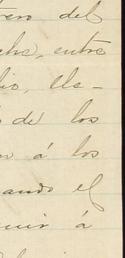 rero del
che, entre
lio, ele-
de los
á los
ando el
uir á